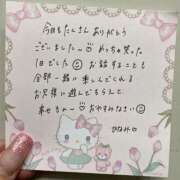 今日もたくさん ありがとう
ございました〜☺ めっちゃ笑った
1日でした☺ お話することも
全部一緒に楽しんでくれる
お兄様に遊んでもらえて
幸せ〜 おやすみなさい☺